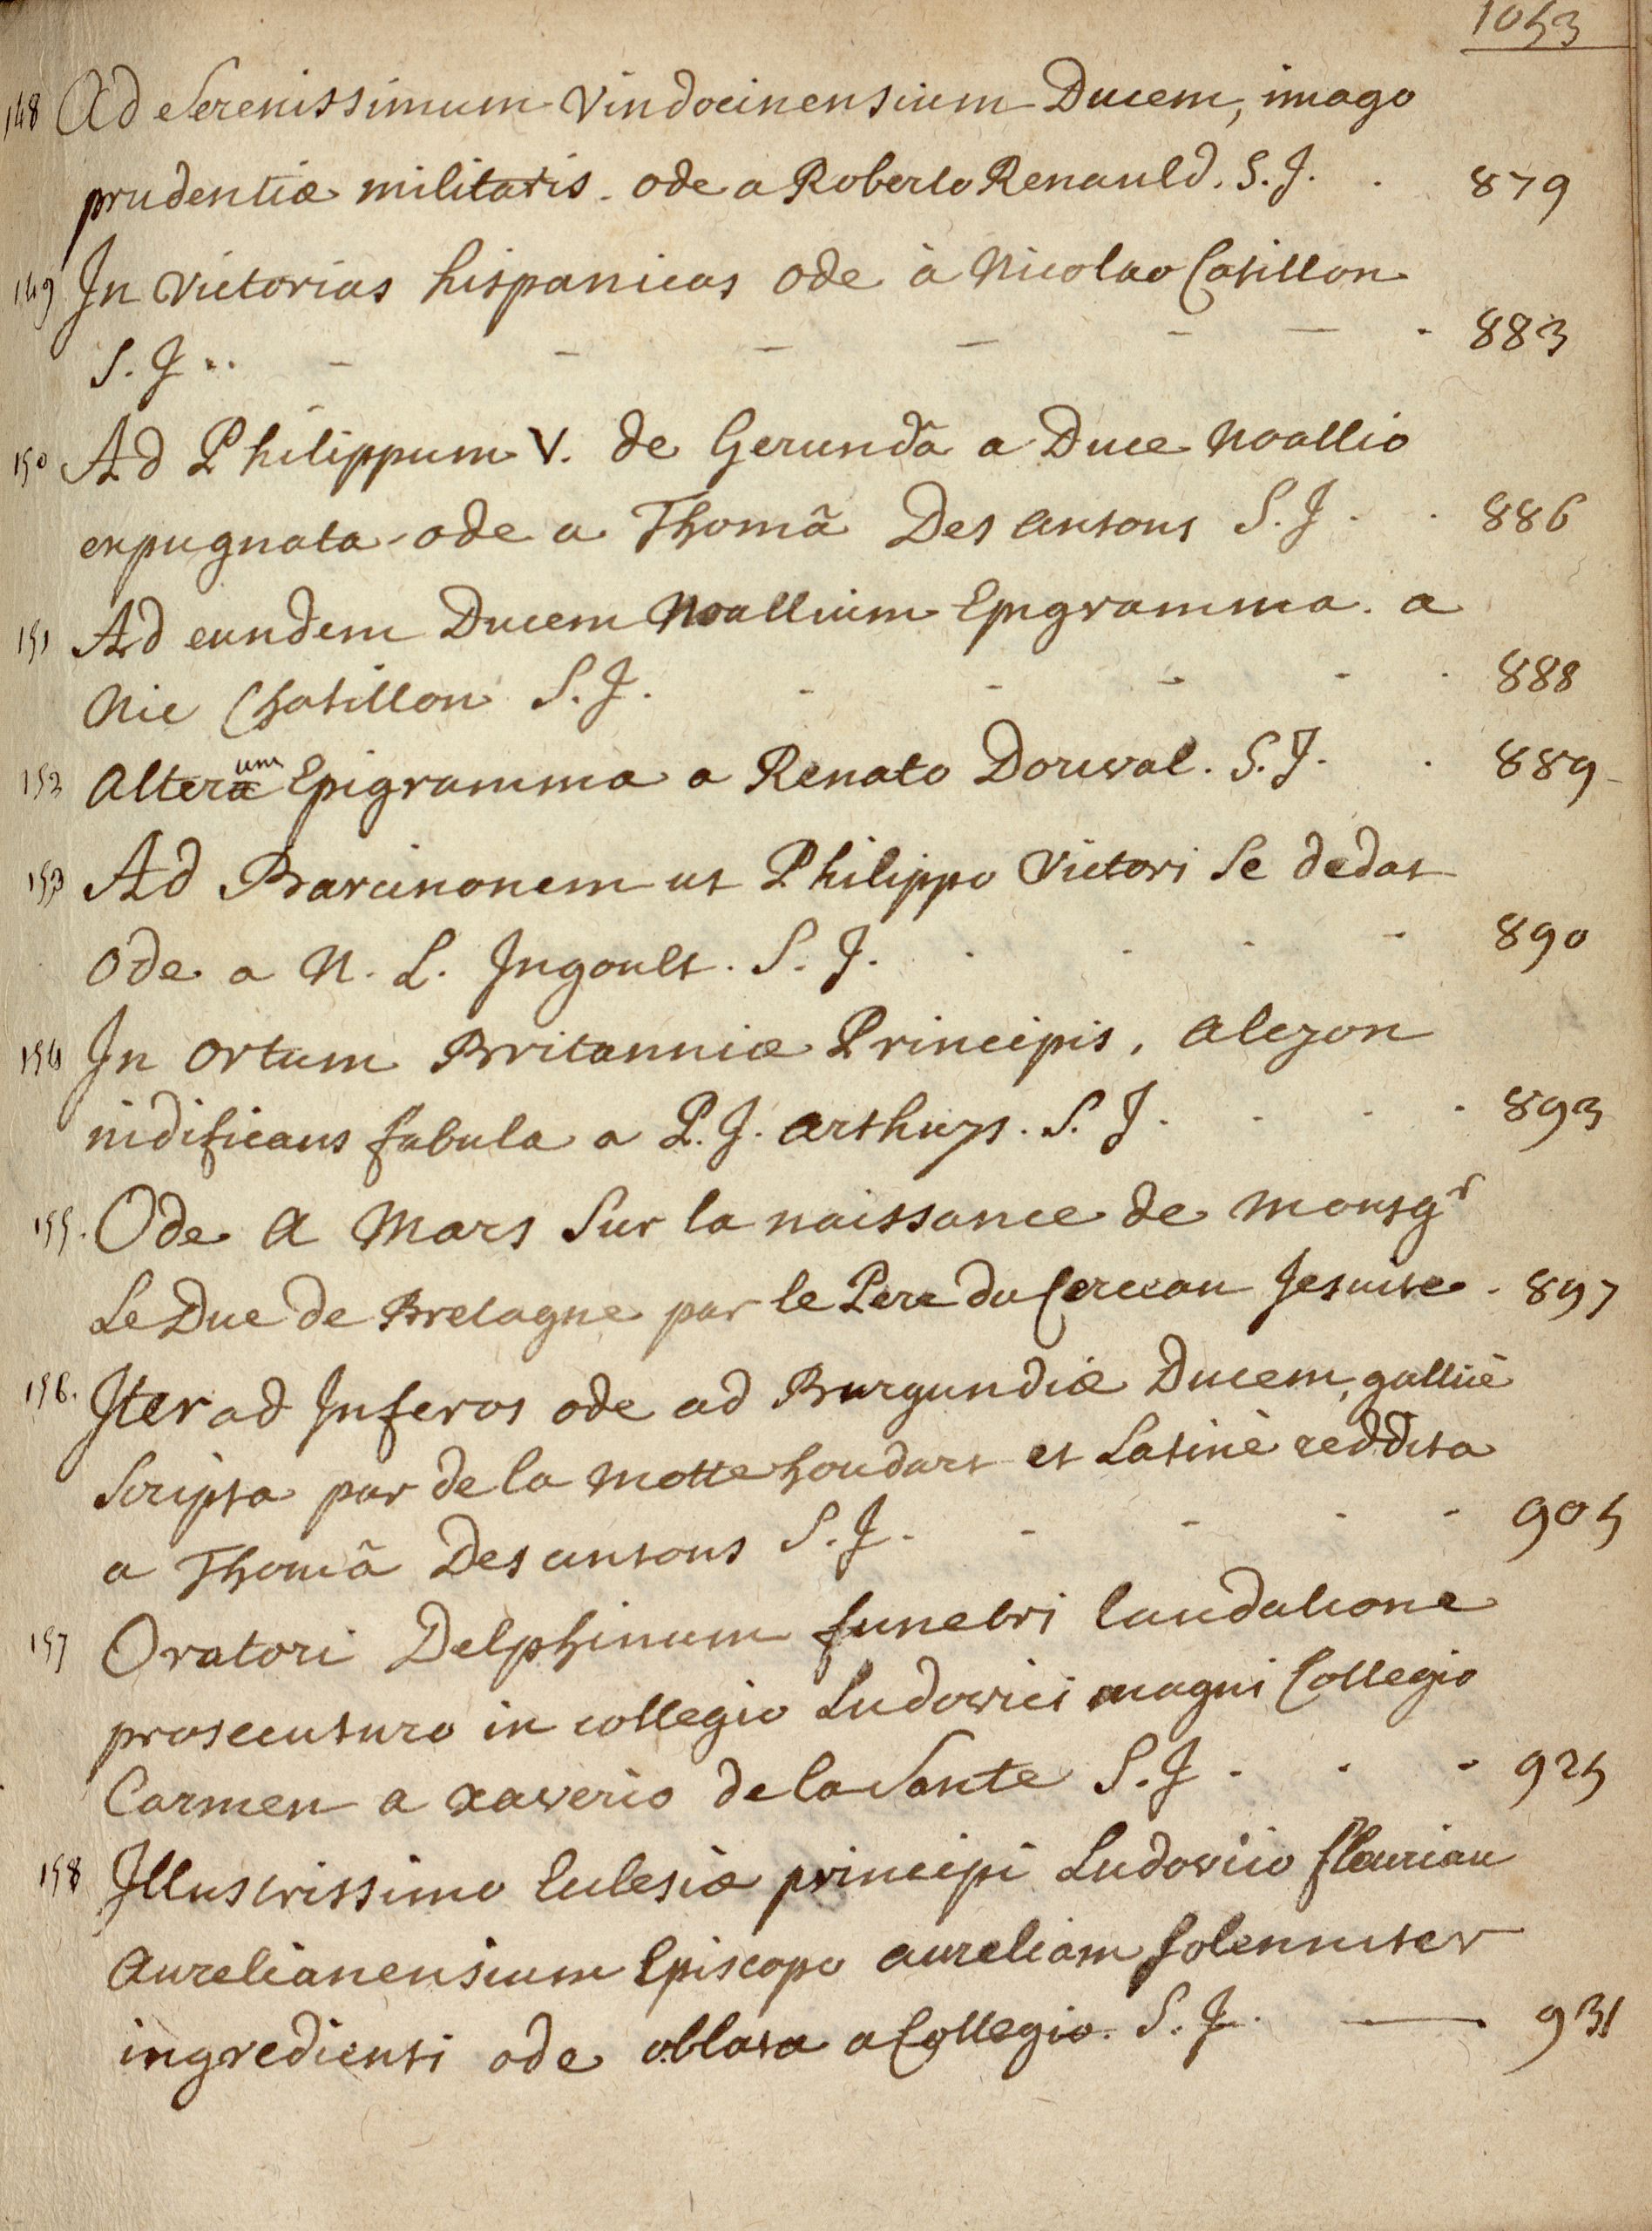 1053
148 Ad Serenissimum Vindocinensium Ducem, imago
prudentiæ militaris. ode a Roberto Renauld. S. J. . 879
149 In victorias hispanicas ode à Nicolao Catillon
S. J .. - - - - - - . 883
150 Ad Philippum V. de Gerundâ a Duce Noallio
expugnata ode a Thomâ Des antons S. J . . 886
151 Ad eundem Ducem Noallium Epigramma. a
Nic Chatillon S. J. - - - - . 888
152 Alteraum Epigramma a Renato Dorival. S. J. . 889
153 Ad Barcinonem ut Philippo Victori se dedat
Ode a N. L. Ingoult. S. J. . - - - 890
154 In ortum Britanniæ Principis, alcyon
nidificans fabula a P. J. arthuys. S. J. . - - 893
155. Ode A Mars sur la naissance de monsgr
Le Duc de Bretagne par le Pere du Cerceau Jesuite . 897
156. Iter ad Inferos ode ad Burgundiæ Ducem, gallicè
scripta par de la Motte houdart et Latinè reddita
a Thomâ Des antons S. J. - - - - 905
157 Oratori Delphinum funebri laudatione
prosecuturo in collegio Ludovici magni Collegio
Carmen a xaverio de la Sante S. J - . - 925
158 Illustrissimo Eclesiæ principi Ludovico fleuriau
Aurelianensium Episcopo aureliam solenniter
ingredienti ode oblata a Collegio. S. J. — 931